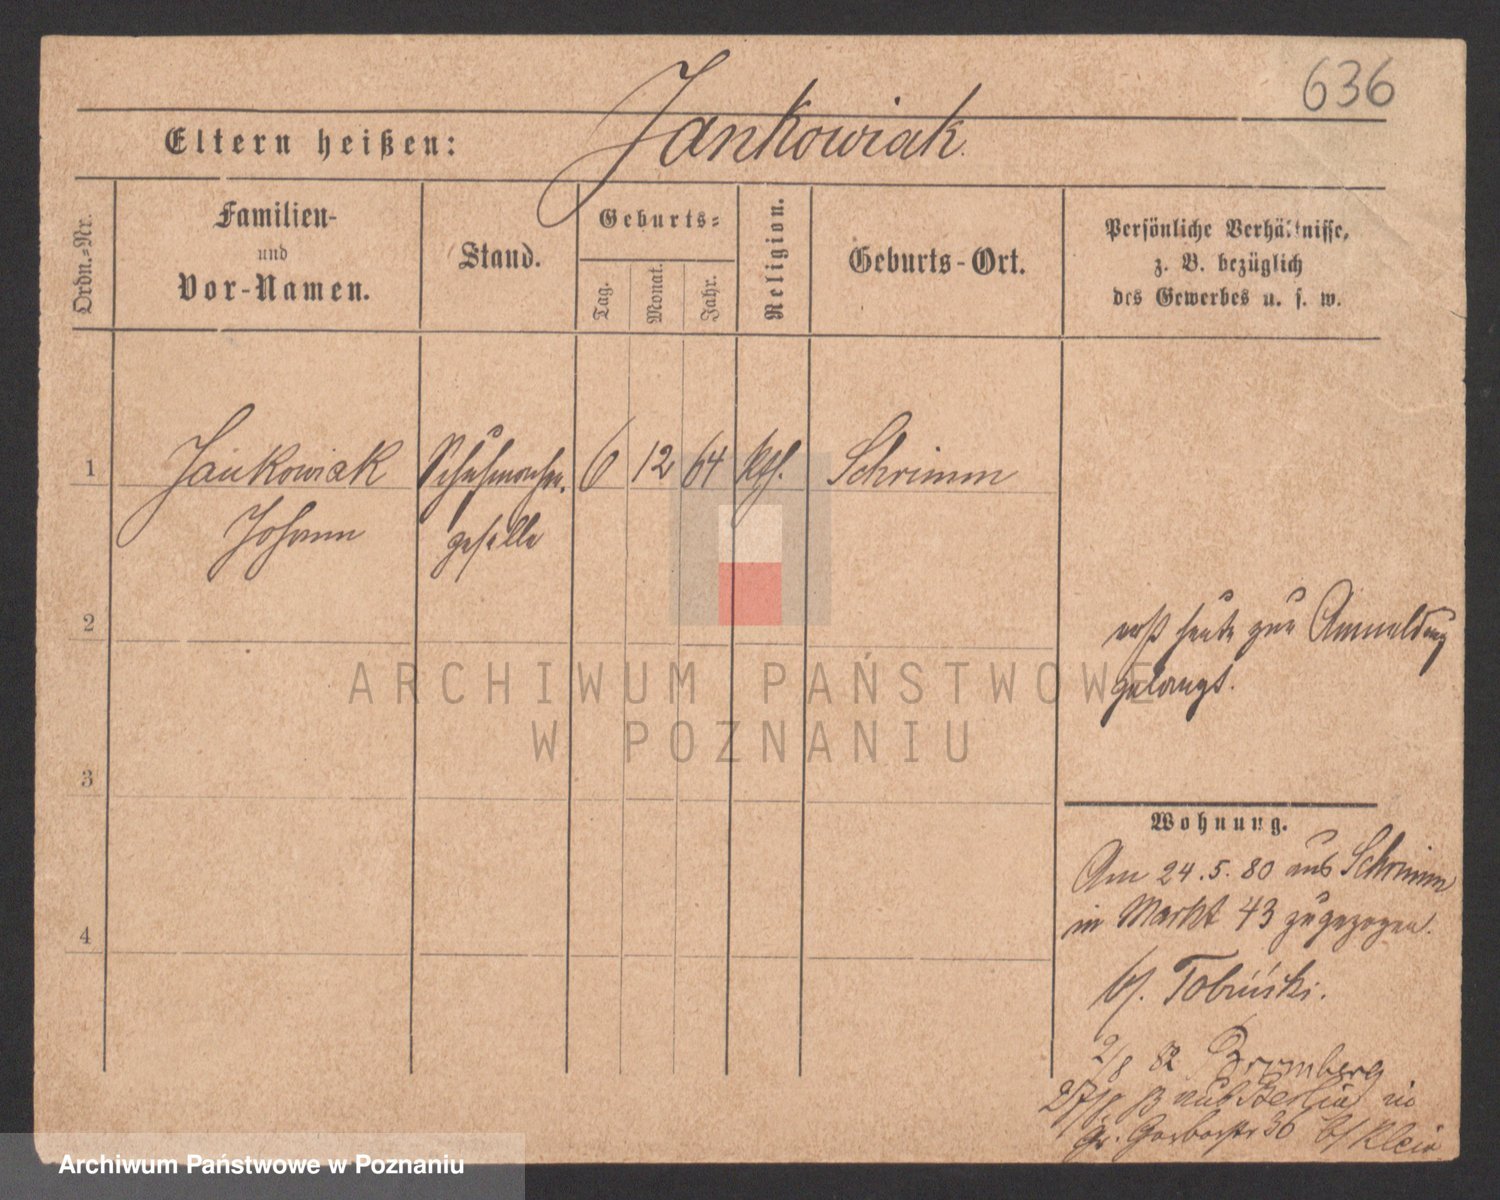 636
Jankowiak
Eltern heißen:
Ordn.=Nr.
Familien-
und
Vor-Namen.
Stand.
Geburts=
Tag.
Monat.
Jahr.
Religion.
Geburts-Ort.
Persönliche Verhältnisse,
z. B. bezüglich
des Gewerbes u. s. w.
1
Jankowiak
Johann
Schuhmacher
geselle
6
12
64
kth.
Schrimm
2
erst heute zur Anmeldung
gelangt.
ARCHIWUM PAŃSTWOWE
W POZNANIU
3
Wohnung.
Am 24.5.80 aus Schrimm
in Markt 43 zugezogen.
b/.
4
2/8 82 Bromberg
27/8 aus Berlin in
Gr. Gerberstr 36 b/ Klein
Archiwum Państwowe w Poznaniu